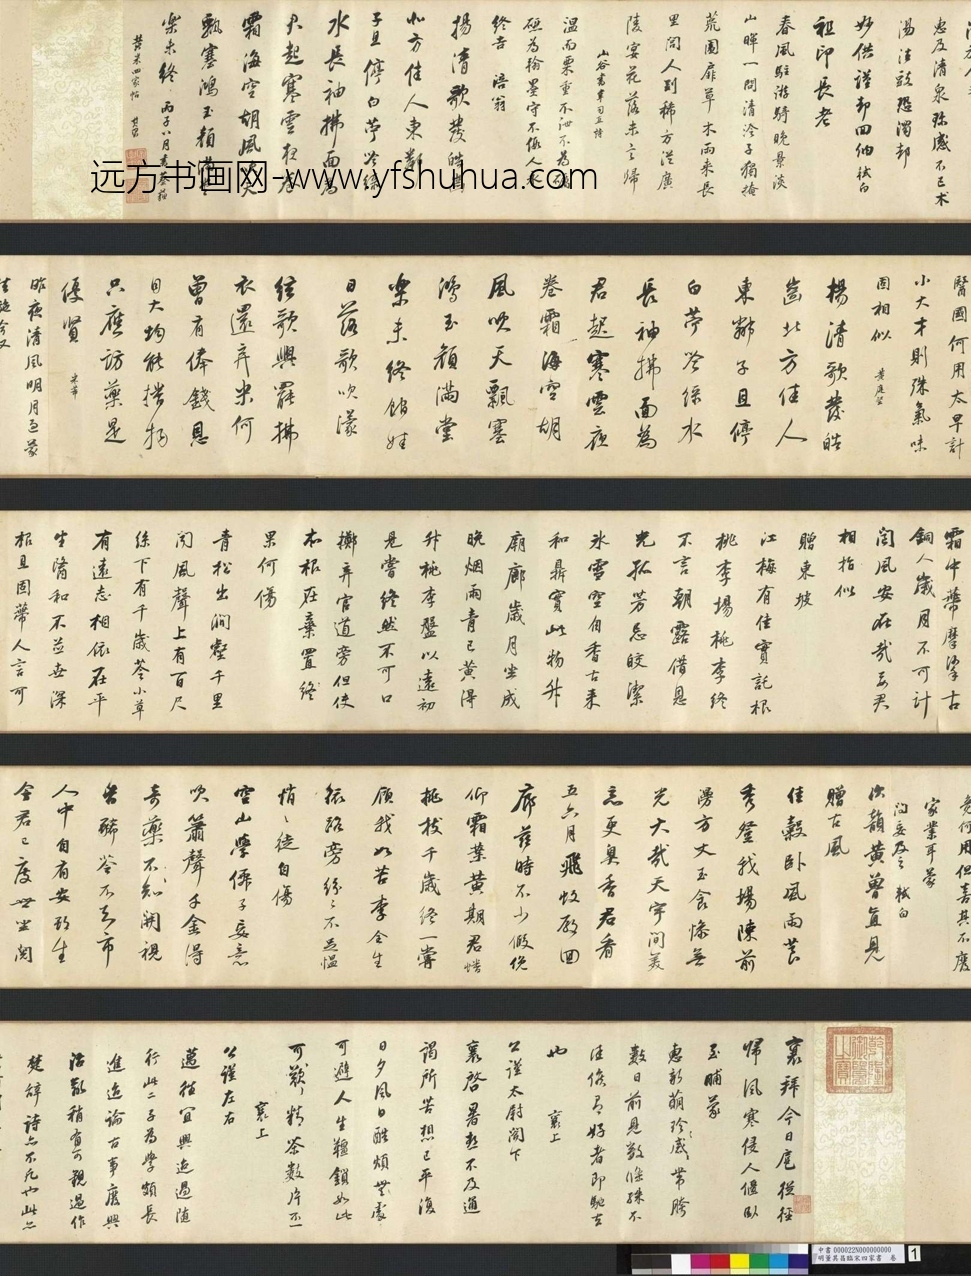 襄拜今日扈從徑
歸風寒侵人偃臥
至晡蒙
惠新萌珍感帶胯
數日前見數條殊不
佳候有好者即馳去
也 襄上
公謹太尉閣下
襄啓暑熱不及通
謁所苦想已平復
日夕風日酷煩無處
可避人生韁鎖如此
可歎精茶數片不一
襄上
公謹左右
邁往宜興迨過隨
行此二子為學頗長
進迨論古事廢興
治亂稍有可觀過作
楚辭詩亦不凡也此亦
竟何用但喜其不廢
家業耳蒙
問妄及之 軾白
次韻黃魯直見
贈古風
佳穀臥風雨莨
秀登我場陳前
漫方丈玉食慘無
光大哉天宇間美
惡更臭香君看
五六月飛蚊殷回
廊茲時不少假俛
仰霜葉黃期君蟠
桃枝千歲終一嘗
顧我如苦李全生
依路旁紛紛不足慍
悄悄徒自傷
空山學仙子妄意
吹簫聲千金得
奇藥不知開視
皆豨苓不知市
人中自有安期生
今君已度世坐閱
霜中蒂摩挲古
銅人歲月不可計
閬風安在哉要君
相指似
贈東坡
江梅有佳實託根
桃李場桃李終
不言朝露借恩
光孤芳忌皎潔
冰雪空自香古來
和鼎實此物升
廟廊歲月坐成
晚烟雨青已黃得
升桃李盤以遠初
見嘗終然不可口
擲棄官道旁但使
本根在棄置終
果何傷
青松出澗壑千里
聞風聲上有百尺
絲下有千歲苓小草
有遠志相依在平
生醫和不並世深
根且固蒂人言可
醫國何用太早計
小大才則殊氣味
固相似 黃庭堅
揚清歌發皓
齒北方佳人
東鄰子且停
白苧吟綠水
長袖拂面為
君起寒雲夜
卷霜海空胡
風吹天飄塞
鴻玉顏滿堂
樂未終館娃
日落歌吹濛
絃歌興罷拂
衣還弃米何
曾有俸錢恩
因大均能播物
只應訪藥是
優賢 米芾
昨夜清風明月過蒙
惠及清泉珍感不已木
湯法豉恐濁却
妙供謹却回納 軾白
祖印長老
春風駐游騎晚景淡
山暉一問清泠子獨掩
荒園扉草木雨來長
里閭人到稀方從廣
陵宴花落未言歸
山谷書韋司五詩
温而栗重不泄不為
硯為翰墨守不係人來
終吉 涪翁
揚清歌發皓齒
北方佳人東鄰
子且停白苧吟綠
水長袖拂面為
君起寒雲夜卷
霜海空胡風吹天
飄塞鴻玉顏滿堂
樂未終 丙子八月
黃米四家帖 其昌
远方书画网-www.yfshuhua.com
中書 000022N000000000
明董其昌臨宋四家書 卷
1